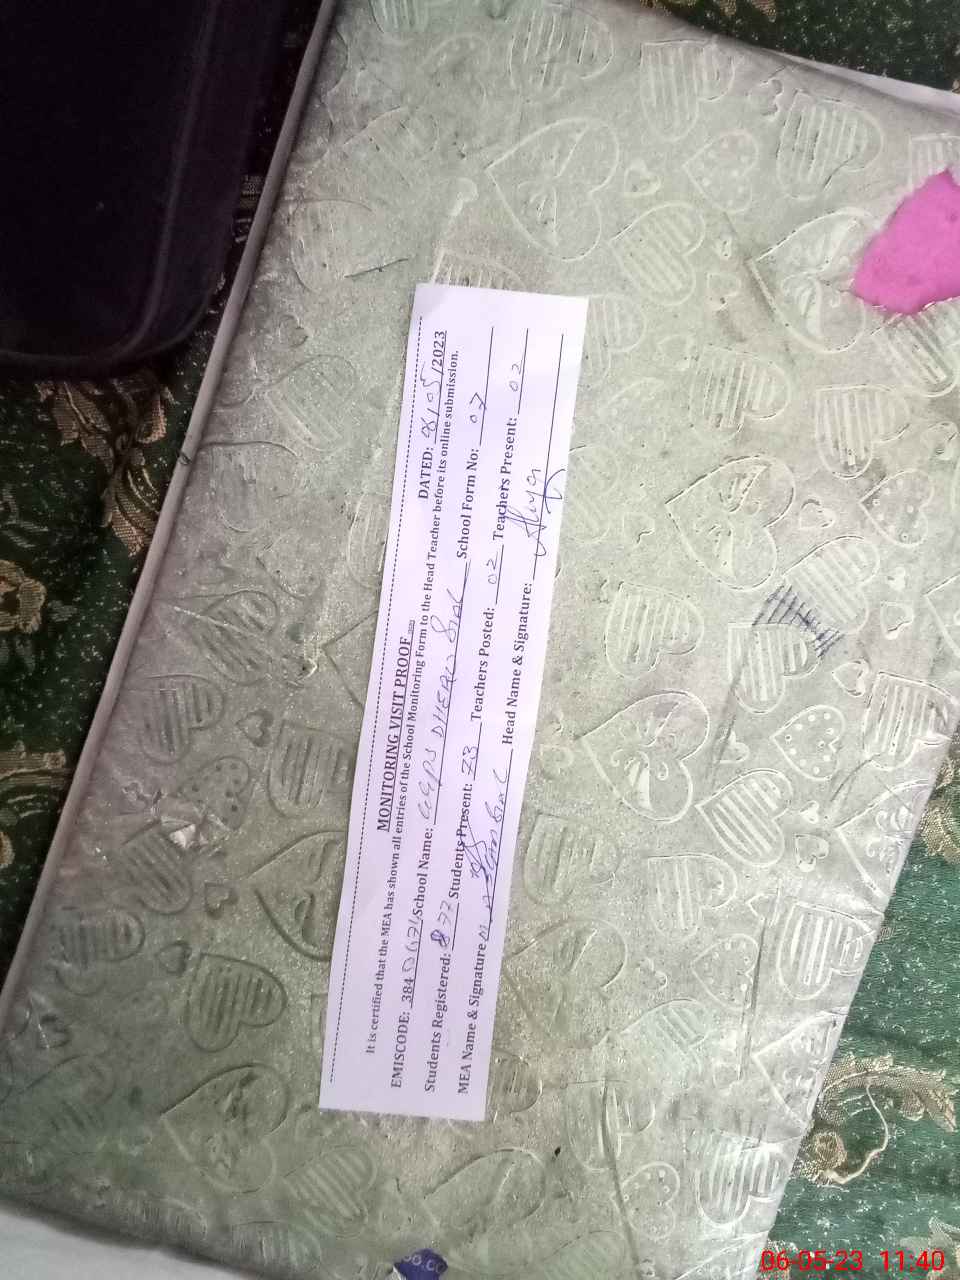 MONITORING VISIT PROOF
It is certified that the MEA has shown all entries of the School Monitoring Form to the Head Teacher before its online submission.
DATED: 06/05/2023
EMISCODE: 384 School Name: GGPS DHERO Sial School Form No: 07
Students Registered: 77 Students Present: 73 Teachers Posted: 02 Teachers Present: 02
MEA Name & Signature Head Name & Signature:
06-05-23 11:40